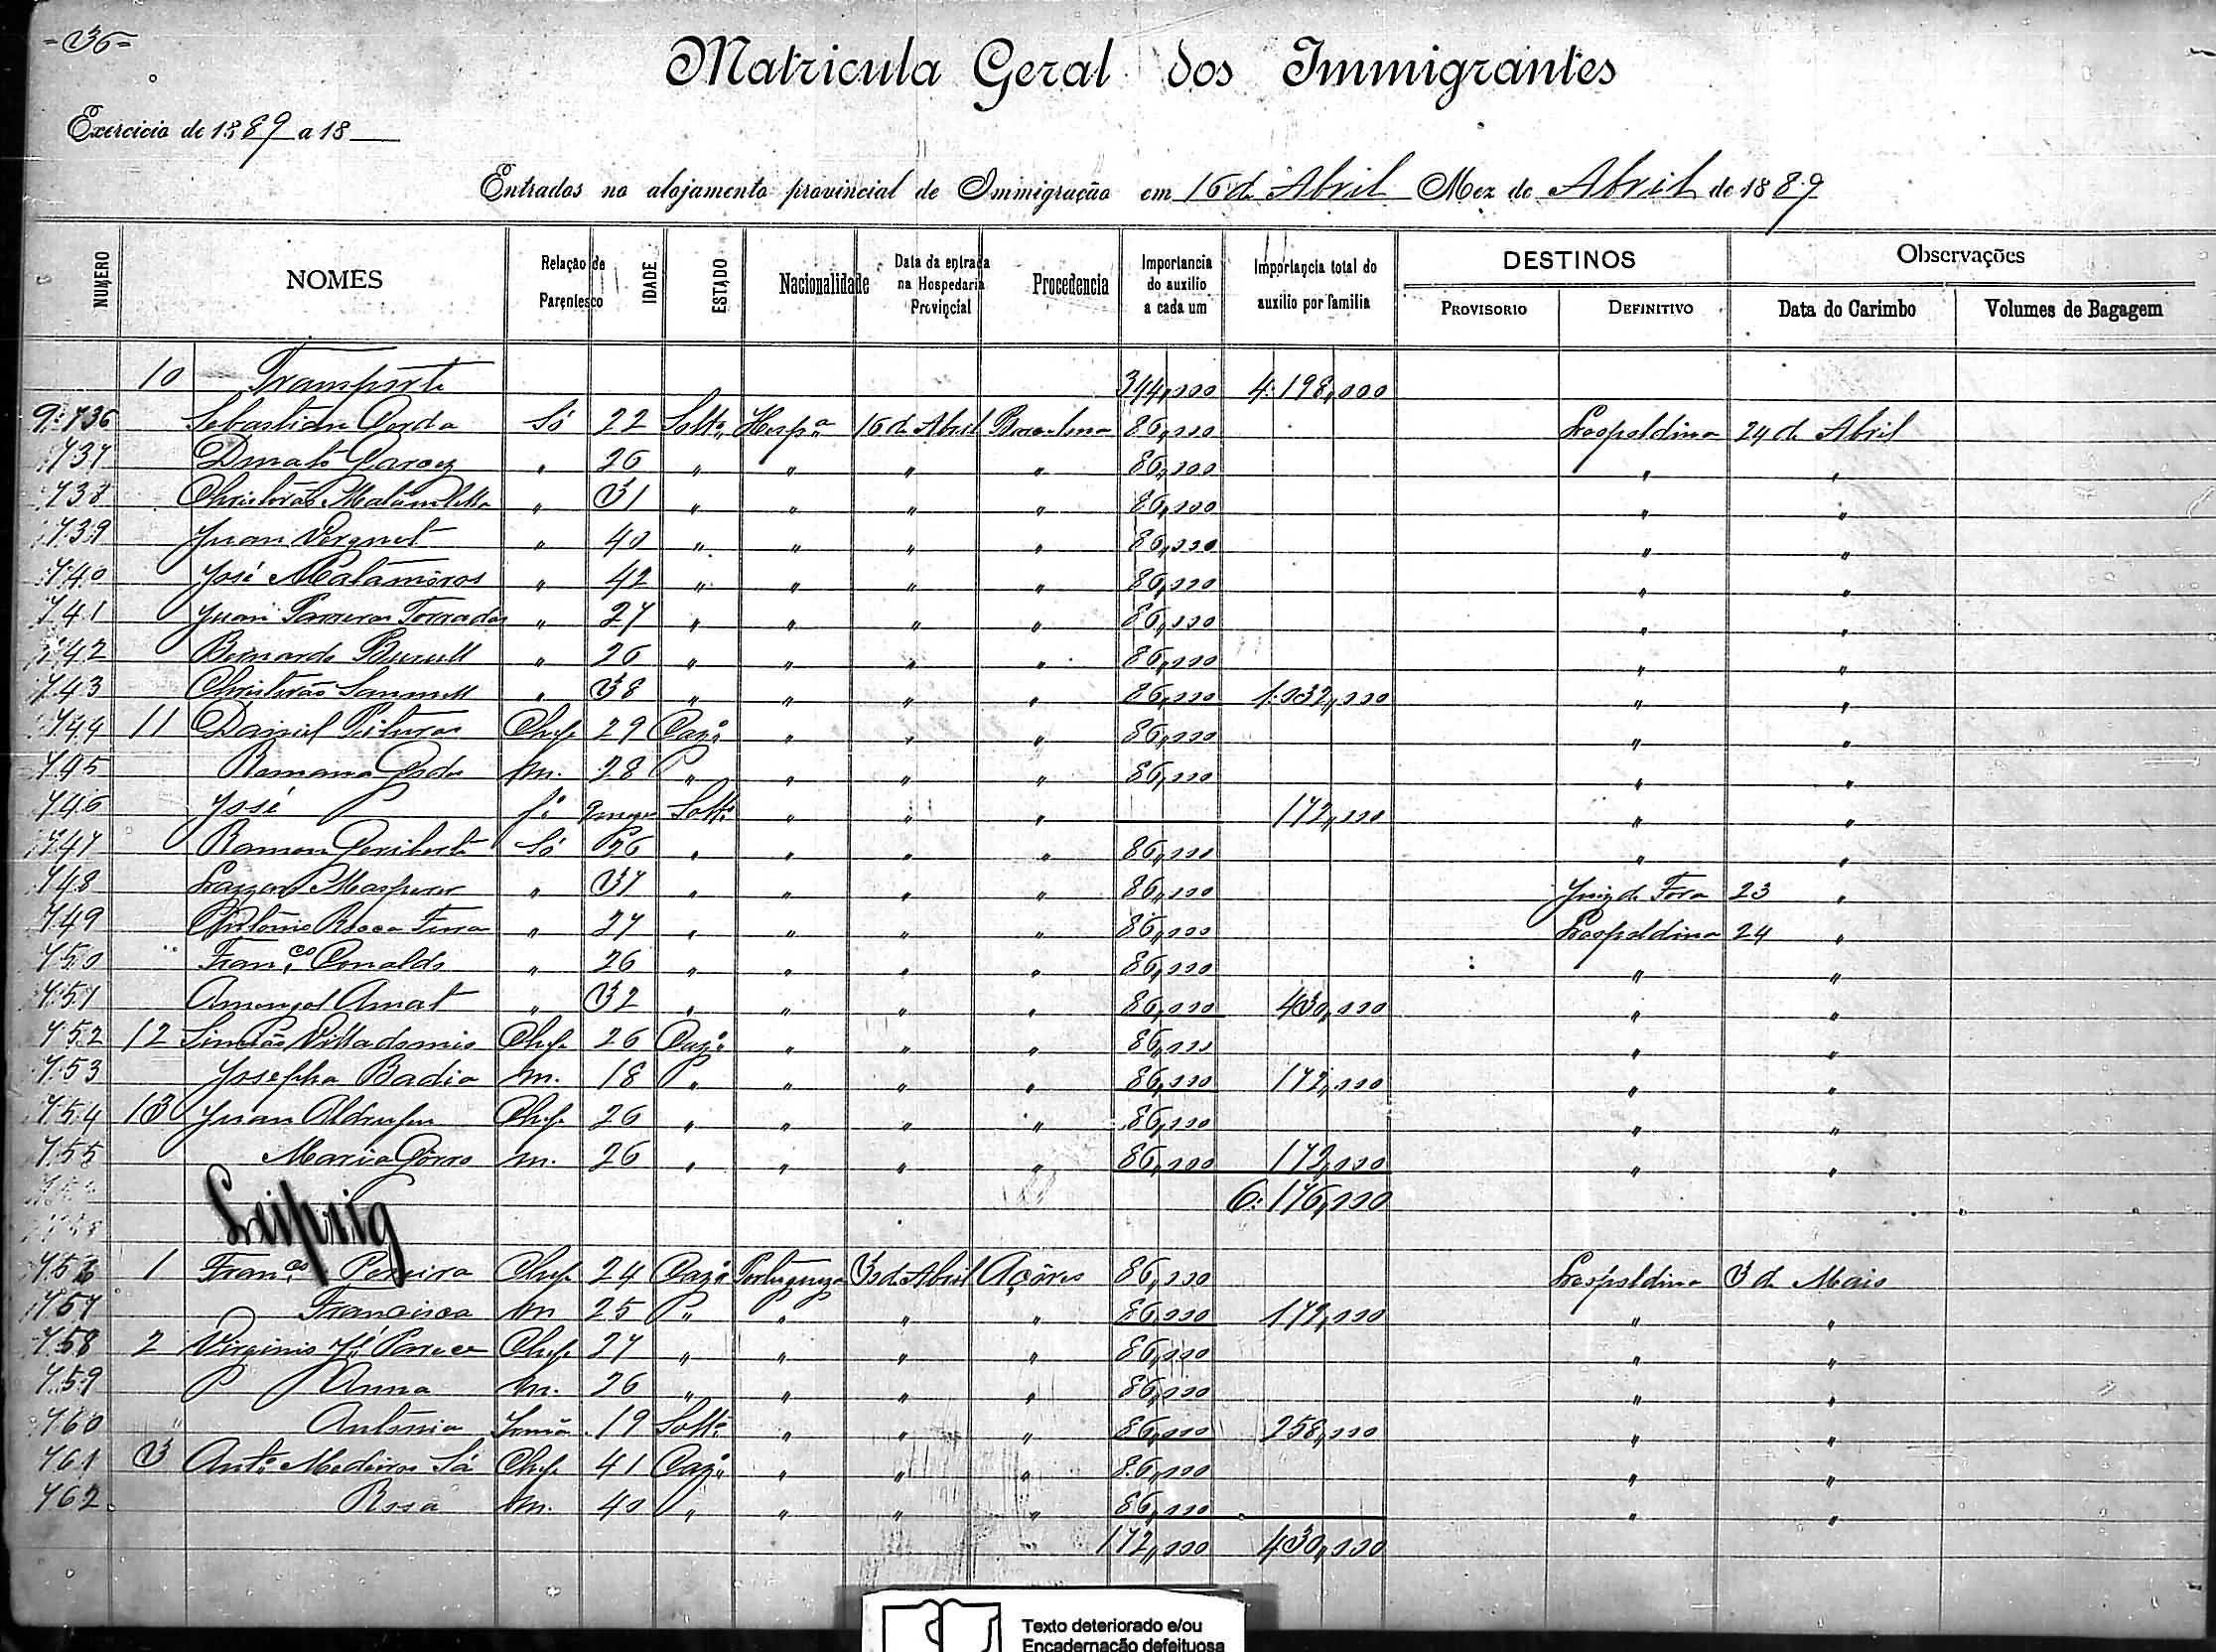 -36-
Matricula Geral dos Immigrantes
Exercicio de 1889 a 18
Entrados no alojamento provincial de Immigração em 16 de Abril Mez de Abril de 1889
NUMERO NOMES Relação de Parentesco IDADE ESTADO Nacionalidade Data da entrada na Hospedaria Provincial Procedencia Importancia do auxilio a cada um Importancia total do auxilio por familia DESTINOS PROVISORIO DEFINITIVO Observações Data do Carimbo Volumes de Bagagem
10 Transporte 344,000 4:198,000
9:736 Sebastian Cerda Só 22 Soltº Hespª 16 de Abril Barcelona 86,000 Leopoldina 24 de Abril
737 Donato " 26 " " " " 86,000 " "
738 Christovão " 31 " " " " 86,000 " "
739 Juan Vergnet " 40 " " " " 86,000 " "
740 José Matamoros " 42 " " " " 86,000 " "
741 Juan " 27 " " " " 86,000 " "
742 Bernardo " 26 " " " " 86,000 " "
743 Christovão " 38 " " " " 86,000 1:032,000 " "
744 11 Daniel Chefe 29 Cazº " " " 86,000 " "
745 Ramona m. 28 " " " " 86,000 " "
746 José fº Soltº " " " 172,000 " "
747 Ramon Só 26 " " " " 86,000 " "
748 " 37 " " " " 86,000 Juiz de Fora 23 "
749 Antonio Roca " 27 " " " " 86,000 Leopoldina 24 "
750 Franco. " 26 " " " " 86,000 " "
751 Amengol Amat " 32 " " " " 86,000 430,000 " "
752 12 Simeão Villadomis Chefe 26 Cazº " " " 86,000 " "
753 Josepha Badia m. 18 " " " " 86,000 172,000 " "
754 13 Juan Chefe 26 " " " " 86,000 " "
755 Maria m. 26 " " " " 86,000 172,000 " "
6:176,000
Leipzig
756 1 Franco. Pereira Chefe 24 Cazº Portugueza 30 de Abril Açôres 86,000 Leopoldina 3 de Maio
757 Francisca m 25 " " " " 86,000 172,000 " "
758 2 Virginio Jé Chefe 27 " " " " 86,000 " "
759 Anna m. 26 " " " " 86,000 " "
760 Antonia Irmã 19 Soltº " " " 86,000 258,000 " "
761 3 Antº Medeiros Sá Chefe 41 Cazº " " " 86,000 " "
762 Rosa m. 40 " " " " 86,000 " "
172,000 430,000
Texto deteriorado e/ou
Encadernação defeituosa